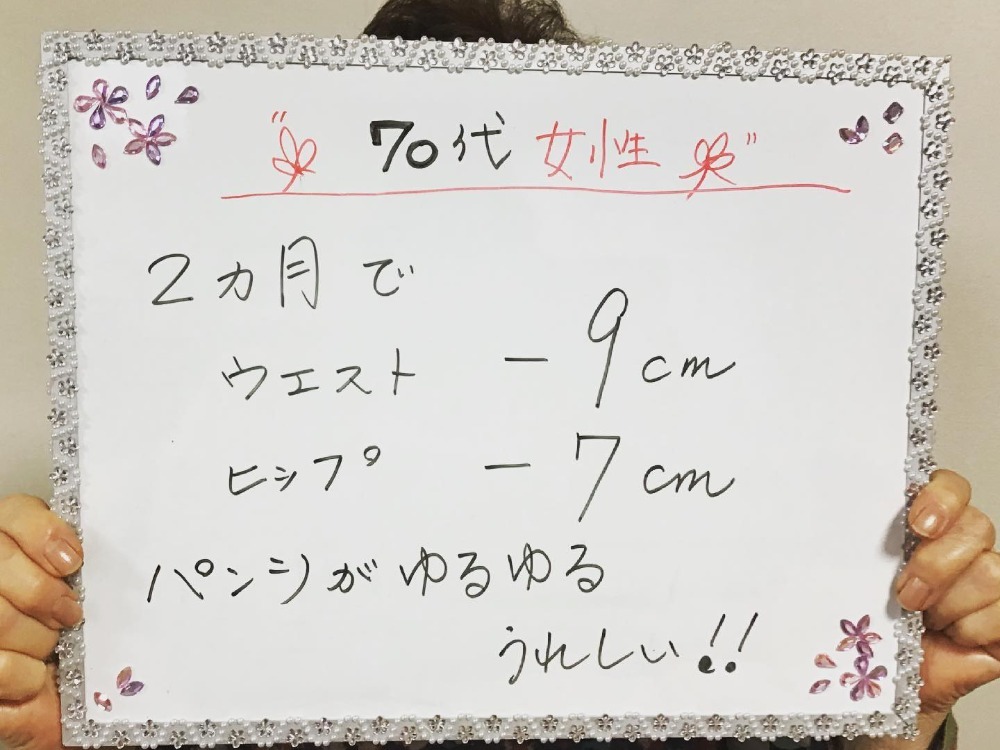 "70代 女性"
2カ月で
ウエスト －9cm
ヒップ －7cm
パンツがゆるゆる
うれしい!!